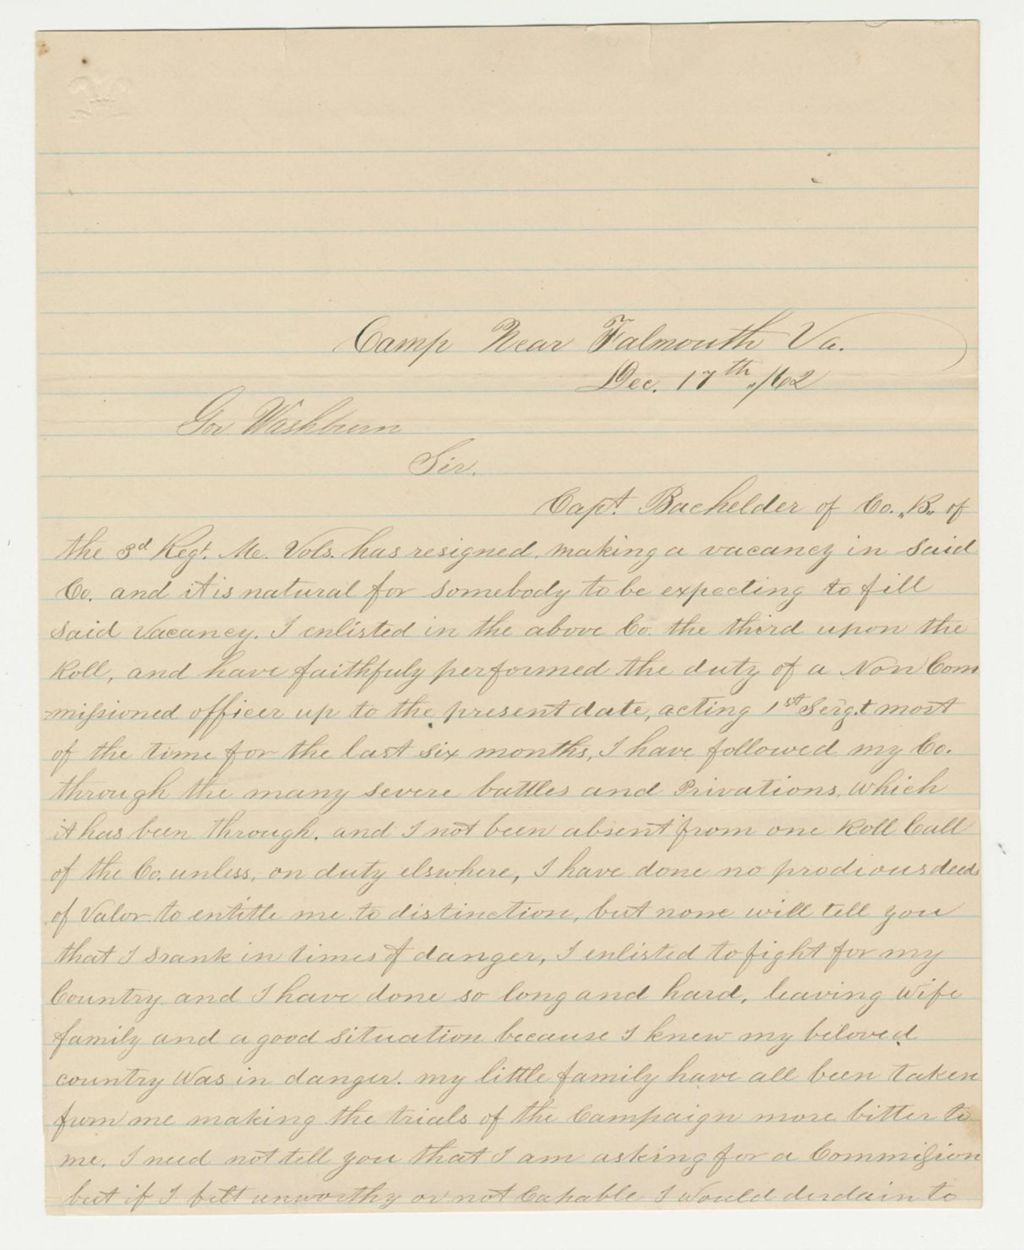 Camp Near Falmouth Va.
Dec. 17th /62
Gov Washburn
Sir.
Capt. Bachelder of Co. "B" of
the 3d Regt. Me. Vols. has resigned, making a vacancy in said
Co. and it is natural for somebody to be expecting to fill
said vacancy. I enlisted in the above Co. the third upon the
Roll, and have faithfuly performed the duty of a Non Com
=missioned officer up to the present date, acting 1st Sergt most
of the time for the last six months, I have followed my Co.
through the many severe battles and Privations, which
it has been through. and I not been absent from one Roll Call
of the Co. unless, on duty elswhere, I have done no prodious deeds
of Valor to entitle me to distinction, but none will tell you
that I srank in times of danger, I enlisted to fight for my
Country and I have done so long and hard, leaving Wife
family and a good situation because I knew my beloved
country Was in danger. my little family have all been taken
from me making the trials of the Campaign more bitter to
me. I need not tell you that I am asking for a Commission
but if I felt unworthy or not Capable I would disdain to